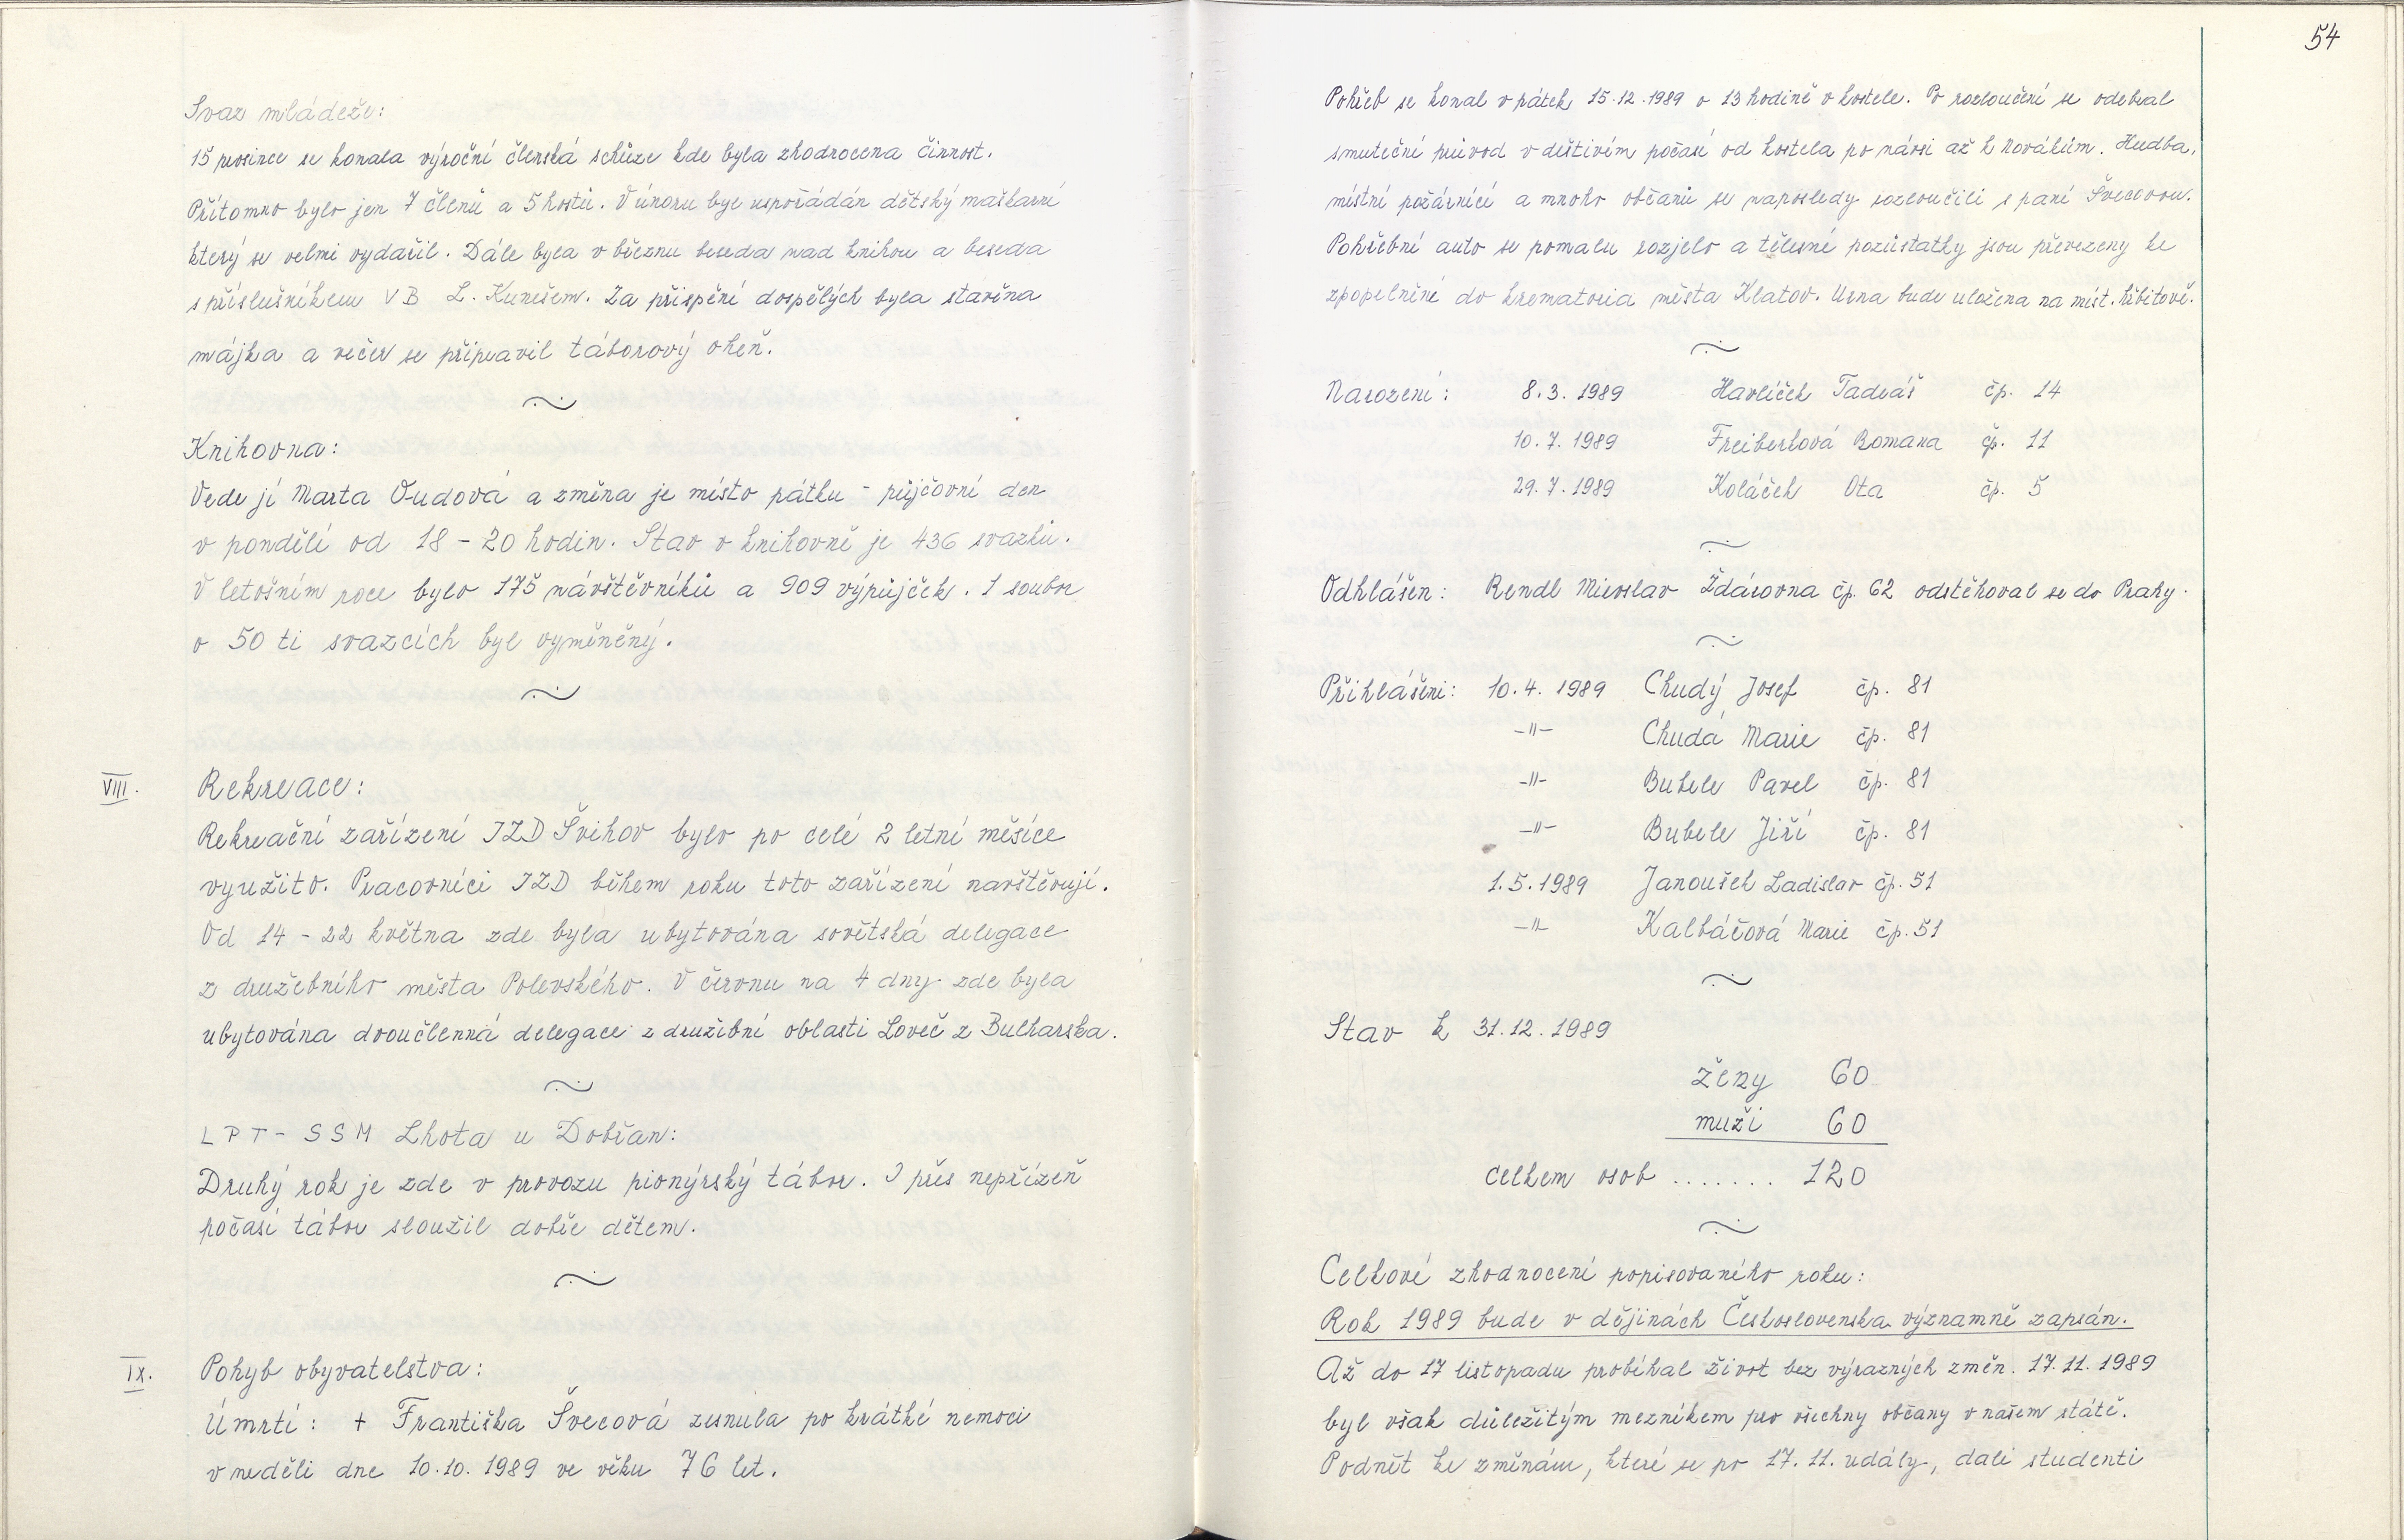 Svaz mládeže:
15 prosince se konala výroční členská schůze kde byla zhodnocena činnost.
Přítomno bylo jen 7 členů a 5 hostů. V únoru byl uspořádán dětský maškarní
který se velmi vydařil. Dále byla v březnu beseda nad knihou a beseda
s příslušníkem VB L. Kunešem. Za přispění dospělých byla stavěna
májka a večer se připravil táborový oheň.
Knihovna:
Vede jí Marta Oudová a změna je místo pátku - půjčovní den
v pondělí od 18 - 20 hodin. Stav v knihovně je 436 svazků.
V letošním roce bylo 175 návštěvníků a 909 výpůjček. 1 soubor
o 50 ti svazcích byl vyměněný.
VIII. Rekreace:
Rekreační zařízení JZD Švihov bylo po celé 2 letní měsíce
využito. Pracovníci JZD během roku toto zařízení navštěvují.
Od 14 - 22 května zde byla ubytována sovětská delegace
z družebního města Polevského. V červnu na 4 dny zde byla
ubytována dvoučlenná delegace z družební oblasti Loveč z Bulharska.
LPT - SSM Lhota u Dobřan:
Druhý rok je zde v provozu pionýrský tábor. I přes nepřízeň
počasí tábor sloužil dobře dětem.
IX. Pohyb obyvatelstva:
Úmrtí: + Františka Švecová zesnula po krátké nemoci
v neděli dne 10.10.1989 ve věku 76 let.
54
Pohřeb se konal v pátek 15.12.1989 o 13 hodině v kostele. Po rozloučení se odebral
smuteční průvod v deštivém počasí od kostela po návsi až k Novákům. Hudba,
místní požárníci a mnoho občanů se naposledy rozloučili s paní Švecovou.
Pohřební auto se pomalu rozjelo a tělesné pozůstatky jsou převezeny ke
zpopelnění do krematoria města Klatov. Urna bude uložena na míst. hřbitově.
Narození: 8.3.1989 Havlíček Tadeáš čp. 14
10.7.1989 Freiberková Romana čp. 11
29.7.1989 Koláček Ota čp. 5
Odhlášen: Rendl Miroslav Ždárovna čp. 62 odstěhoval se do Prahy.
Přihlášeni: 10.4.1989 Chudý Josef čp. 81
-"- Chudá Marie čp. 81
-"- Bubele Pavel čp. 81
-"- Bubele Jiří čp. 81
1.5.1989 Janoušek Ladislav čp. 51
-"- Kalbáčová Marie čp. 51
Stav k 31.12.1989
ženy 60
muži 60
celkem osob ....... 120
Celkové zhodnocení popisovaného roku:
Rok 1989 bude v dějinách Československa významně zapsán.
Až do 17 listopadu probíhal život bez výrazných změn. 17.11.1989
byl však důležitým mezníkem pro všechny občany v našem státě.
Podnět ke změnám, které se po 17.11. udály, dali studenti